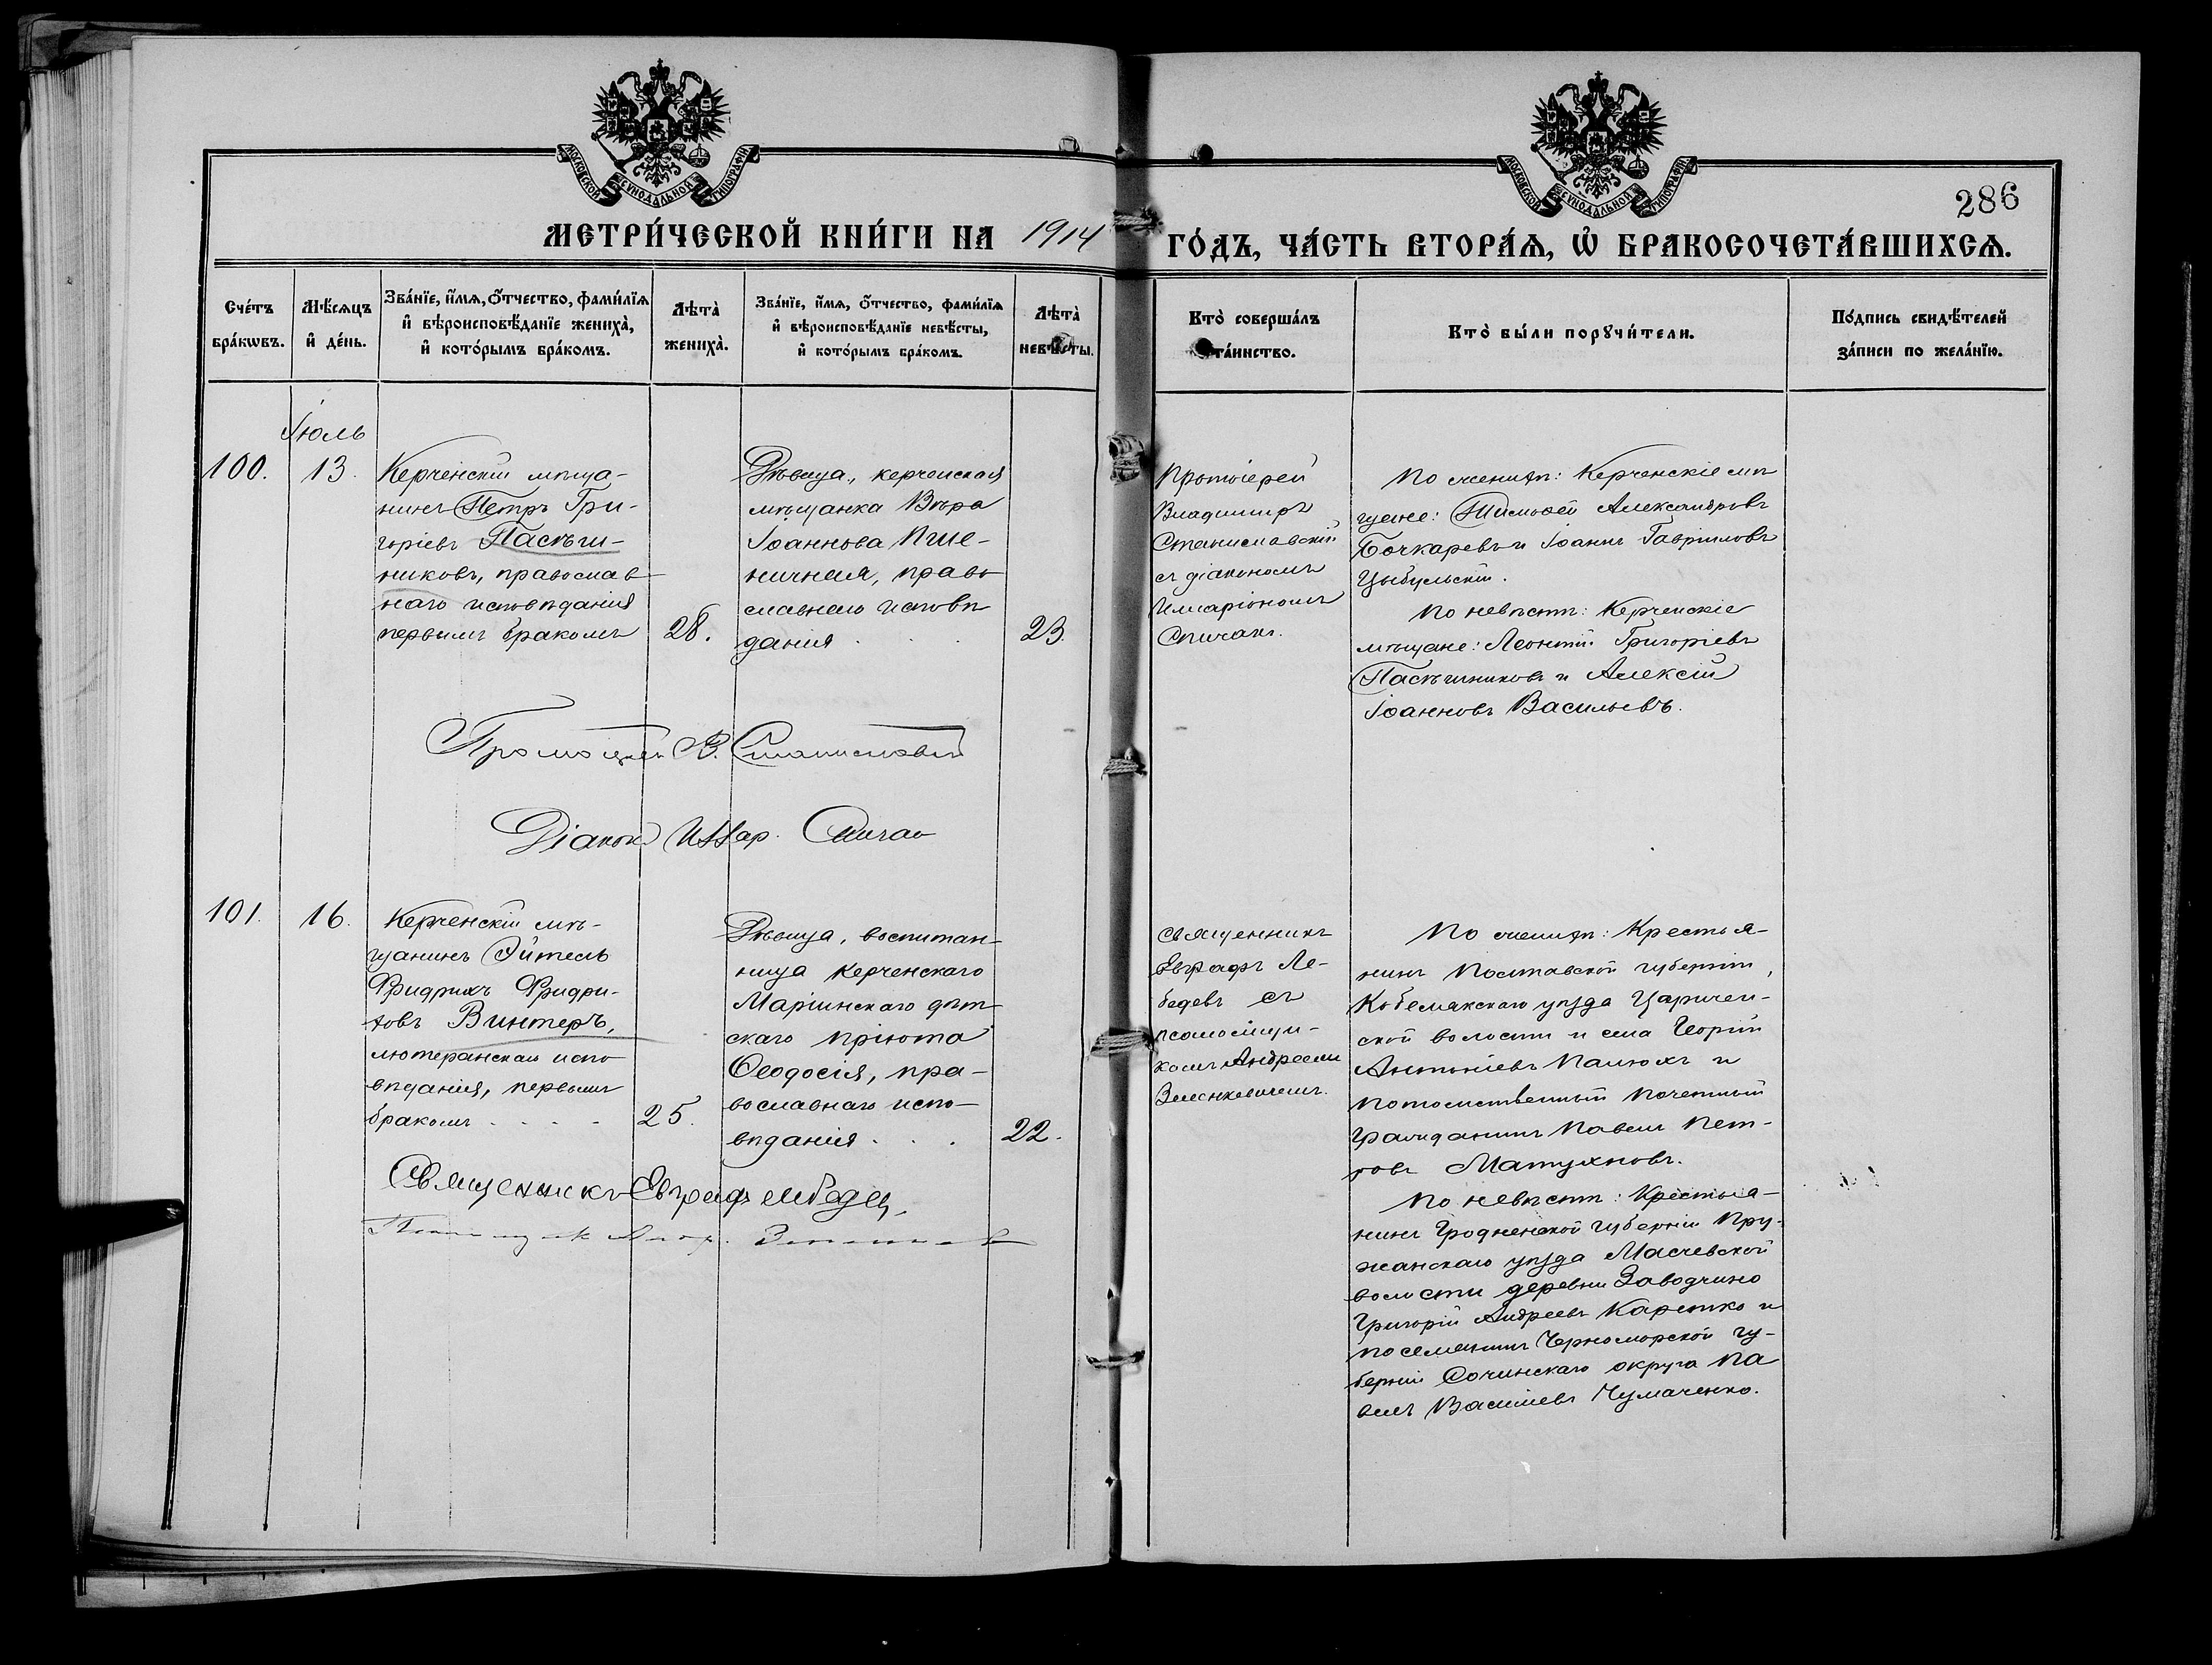 МОСКОВСКОЙ СѴНОДАЛЬНОЙ ТИПОГРАФІИ
МОСКОВСКОЙ СѴНОДАЛЬНОЙ ТИПОГРАФІИ
286
МЕТРИ́ЧЕСКОЙ КНИ́ГИ НА 1914
ГО́ДЪ, ЧА́СТЬ ВТОРА́Я, Ѡ БРАКОСОЧЕТА́ВШИХСЯ.
Сче́тъ
бра́кѡвъ.
Мѣ́сяцъ
и҆ де́нь.
Зва́нїе, и҆́мѧ, ѻ҆́тчество, фами́лїѧ
и҆ вѣроисповѣ́данїе жениха̀,
и҆ кото́рымъ бра́комъ.
Лѣта̀
жениха̀.
Зва́нїе, и҆́мѧ, ѻ҆́тчество, фами́лїѧ
и҆ вѣроисповѣ́данїе невѣ́сты,
и҆ кото́рымъ бра́комъ.
Лѣта̀
невѣ́сты.
Кто̀ соверша́лъ
та́инство.
Кто̀ бы́ли порꙋчи́тели.
По́дпись свидѣ́телей
за́писи по жела́нїю.
Іюль
100.
13.
Керченскій мѣща-
нинъ Петръ Гри-
горіевъ Пасѣчни-
никовъ, православ-
наго исповѣданія
первымъ бракомъ
28.
Дѣвица, керченская
мѣщанка Вѣра
Іоаннова Пше-
ничная, право
славнаго исповѣ
данія . . .
23.
Протоіерей
Владиміръ
Станиславскій
съ діакономъ
Иларіономъ
Спичакъ.
По женихѣ: Керченскіе мѣ
щане: Тимофей Александровъ
Бочкаревъ и Іоаннъ Гавріиловъ
Цыбульскій.
По невѣстѣ: Керченскіе
мѣщане: Леонтій Григоріевъ
Пасѣчниковъ и Алексій
Іоанновъ Васильевъ.
Протоіерей В. Станиславскій
Діаконъ Илар. Спичак
101.
16.
Керченскій мѣ-
щанинъ Эйтель
Фридрихъ Фридри-
ховъ Винтеръ,
лютеранскаго испо
вѣданія, первымъ
бракомъ . . . .
25.
Дѣвица, воспитан-
ница Керченскаго
Маріинскаго дѣт-
скаго пріюта
Ѳеодосія, пра-
вославнаго испо-
вѣданія . . .
22.
Священникъ
Евграфъ Ле-
бедевъ съ
псаломщи-
комъ Андреемъ
Зеленкевичемъ.
По женихѣ: Крестья-
нинъ Полтавской губерніи,
Кобелякскаго уѣзда Царичан-
ской волости и села Георгій
Антоніевъ Палюхъ и
потомственный почетный
гражданинъ Павелъ Пет-
ровъ Матухновъ.
По невѣстѣ: Крестья-
нинъ Гродненской губерніи Пру-
жанскаго уѣзда Масчевской
волости деревни Заводчино
Григорій Андреевъ Карсюко и
поселянинъ Черноморской гу-
берніи Сочинскаго округа Па
велъ Василіевъ Чумаченко.
Священникъ Евграфъ Лебедев.